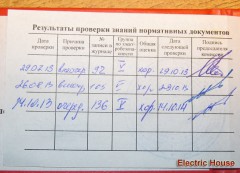 Результаты проверки знаний нормативных документов
Дата проверки
Причина проверки
№ записи в журнале
Группа по электробезопасности
Общая оценка
Дата следующей проверки
Подпись председателя комиссии
29.07.13 внеоч. 92 V хор. 29.10.13
26.08.13 105 V хор.
14.10.13 очеред. 136 V хор. 14.10.14
Electric House